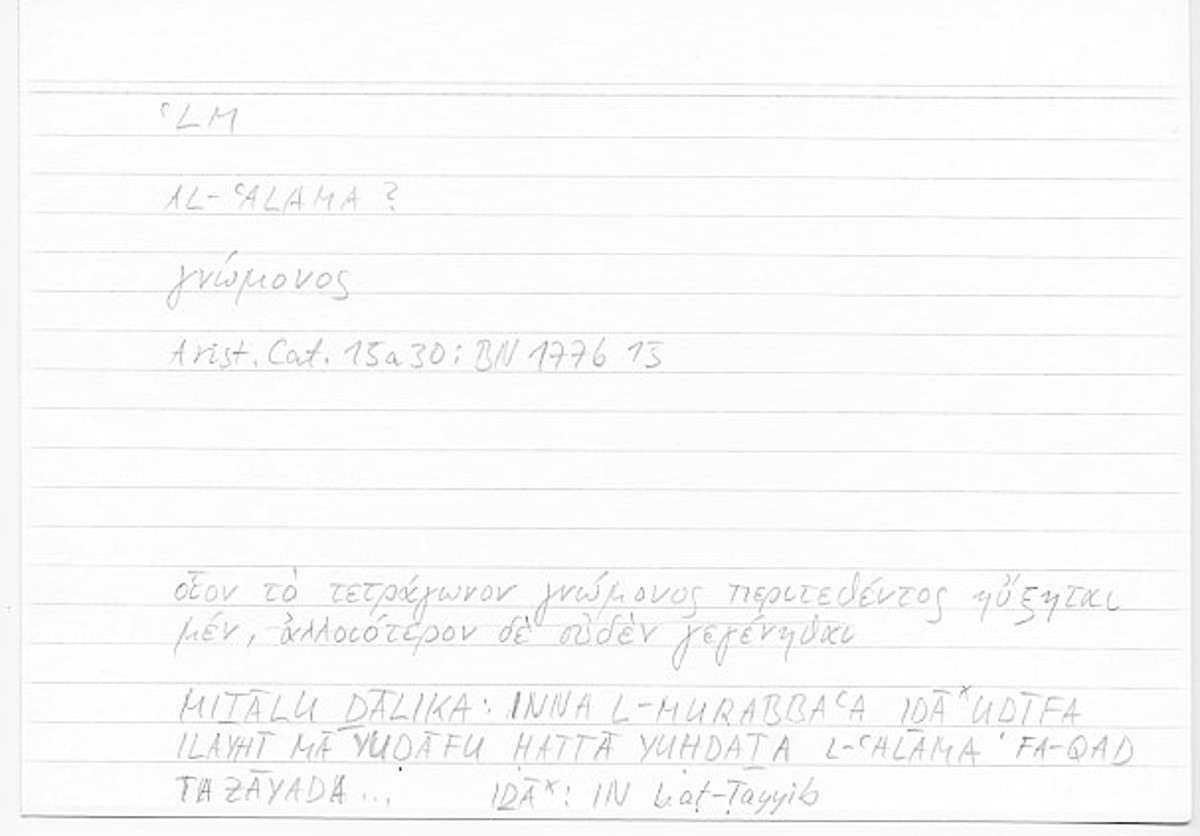 ʿLM
AL-ʿALAMA ?
γνώμονος
Arist. Cat. 15a30: BN 1776 15
οἷον τὸ τετράγωνον γνώμονος περιτεθέντος ηὔξηται
μέν, ἀλλοιότερον δὲ οὐδὲν γεγένηται
MIṮĀLU ḎĀLIKA: INNA L-MURABBAʿA IḎĀ* UḌĪFA
ILAYHĪ MĀ YUḌĀFU ḤATTĀ YUḤDAṮA L-ʿALĀMA FA-QAD
TAZĀYADA... IḎĀ*: IN b.aṭ-Ṭayyib